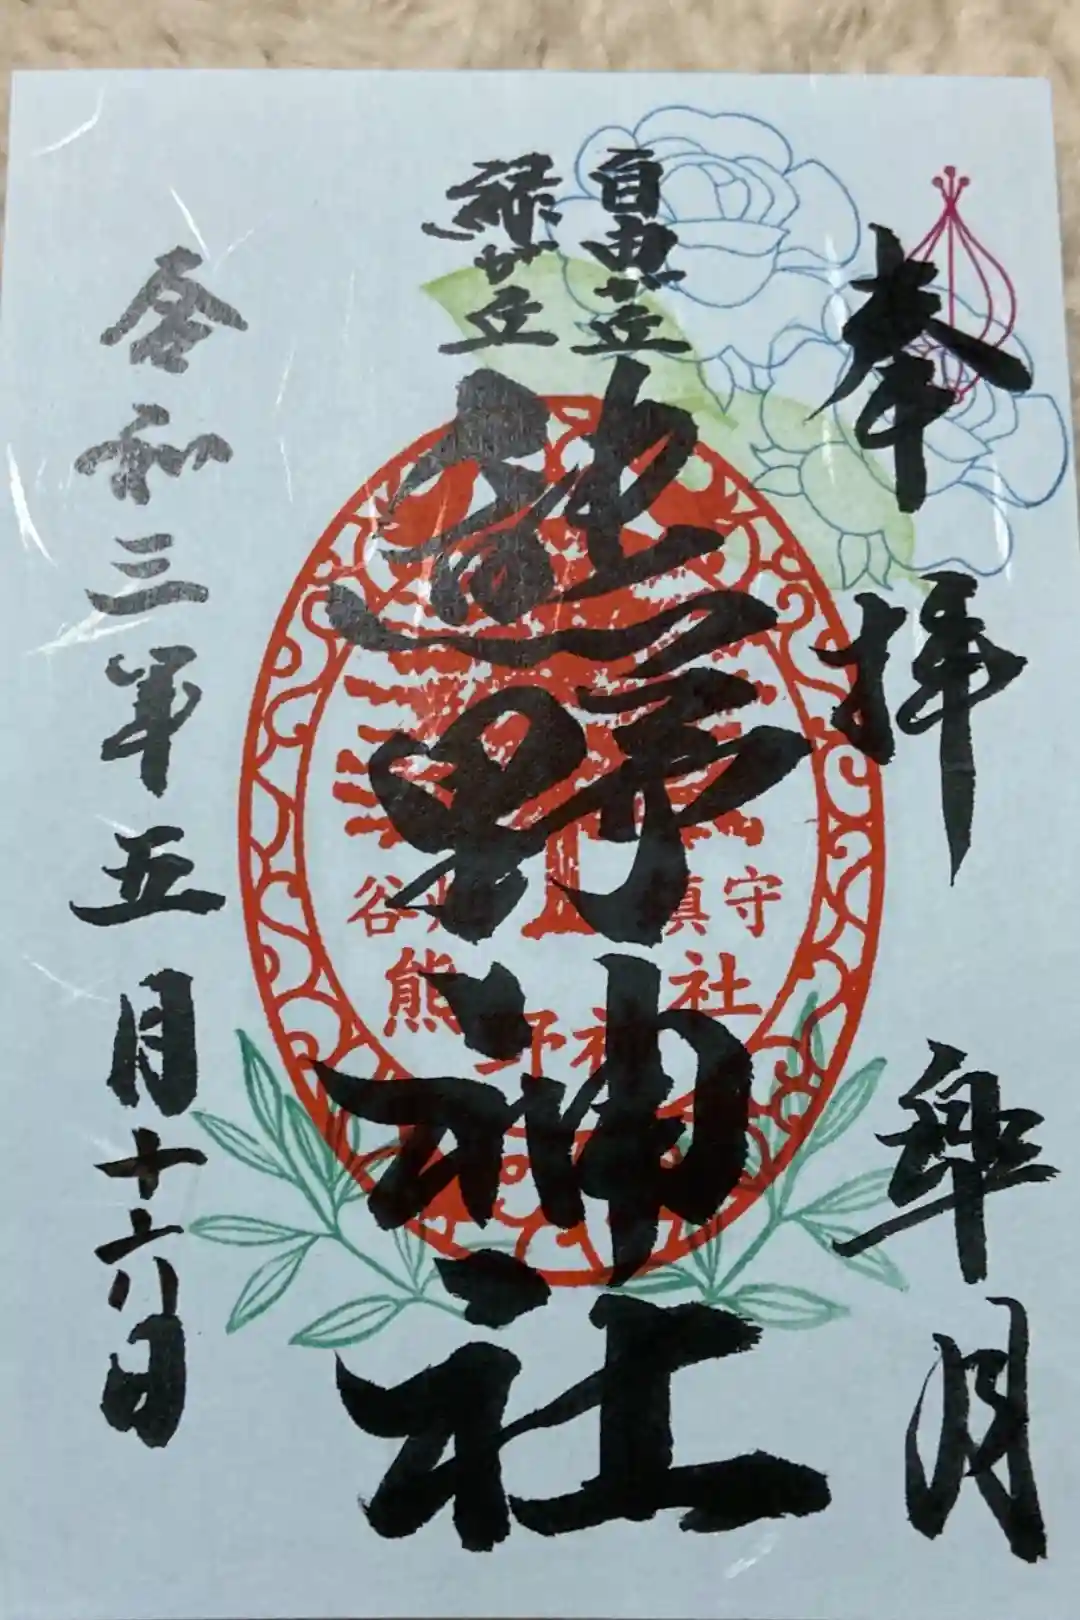 奉拝 皐月
自由が丘
緑が丘
熊野神社
令和三年五月十六日
鎮守
熊野神社